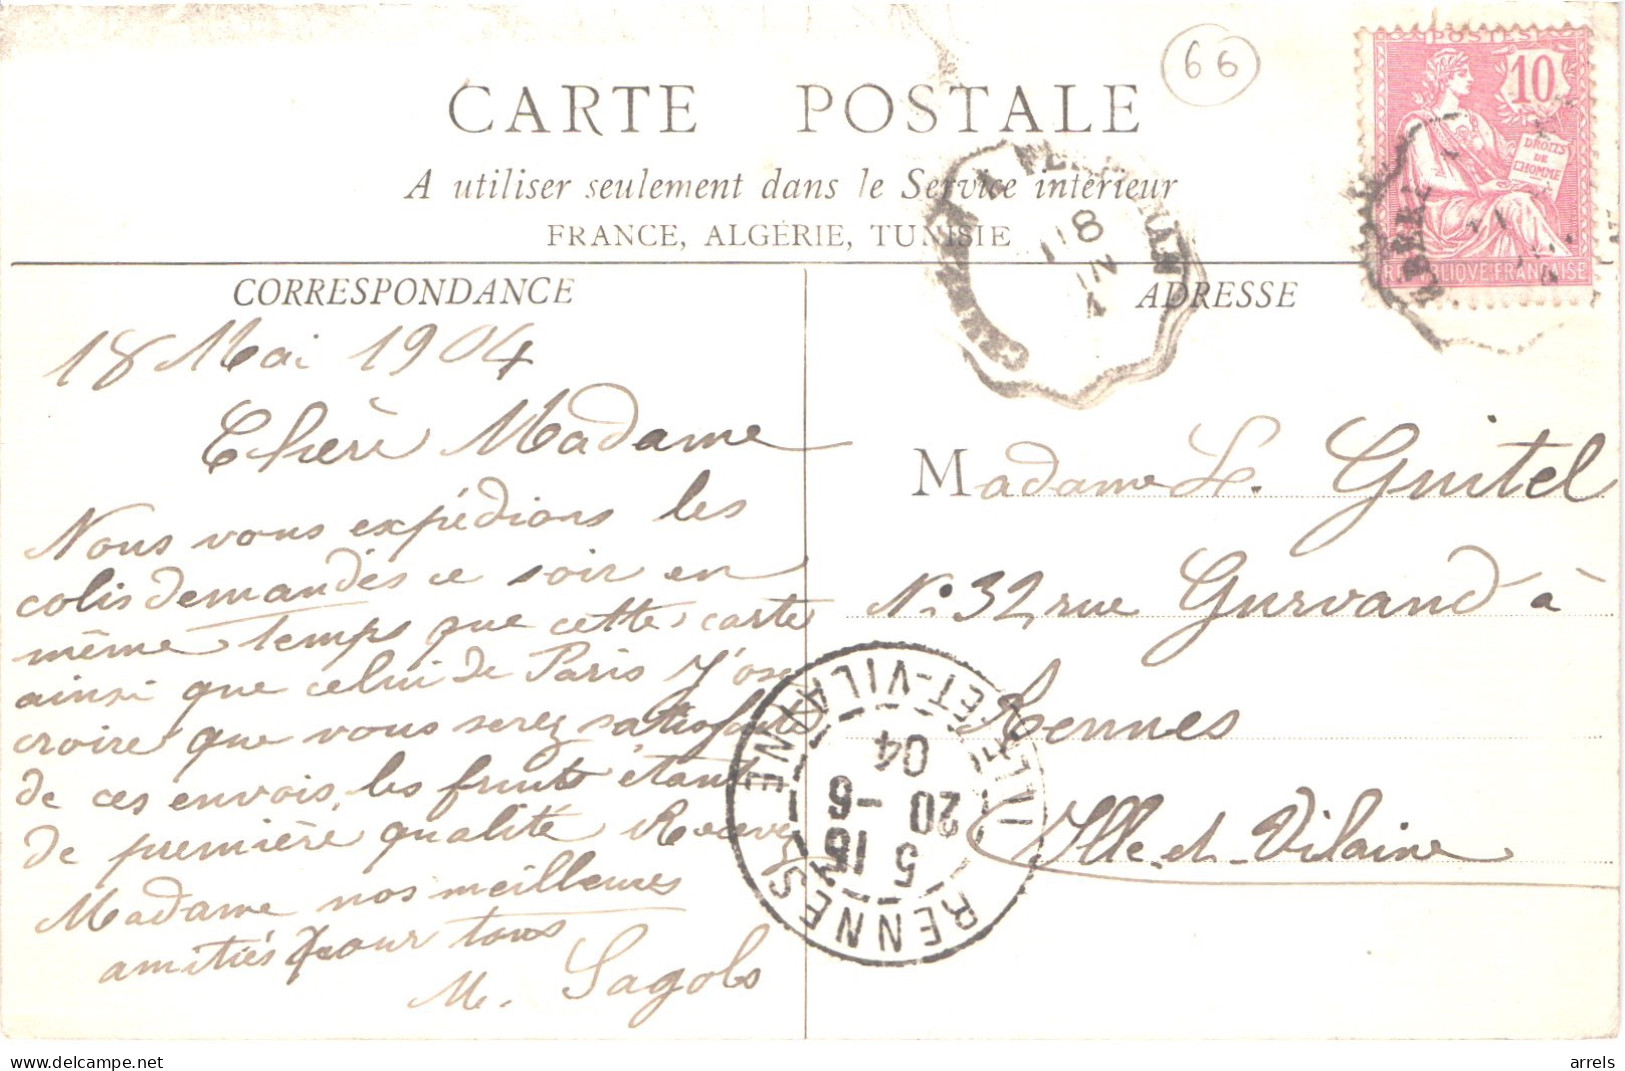 66
CARTE POSTALE
A utiliser seulement dans le Service intérieur
FRANCE, ALGÉRIE, TUNISIE
POSTES
10
DROITS
DE
L'HOMME
REPUBLIQUE FRANÇAISE
18
JUIN
4
CORRESPONDANCE
18 Mai 1904
Chère Madame
Nous vous expédions les
colis demandés ce soir en
même temps que cette carte
ainsi que celui de Paris J'ose
croire que vous serez satisfait
de ces envois, les fruits étant
de première qualité Recevez
Madame nos meilleures
amitiés pour tous
M. Sagols
ADRESSE
Madame L. Guitel
N° 32 rue Gurvand à
Rennes
Ille-et-Vilaine
RENNES
ILLE-ET-VILAINE
5 15
20 -6
04
arrels